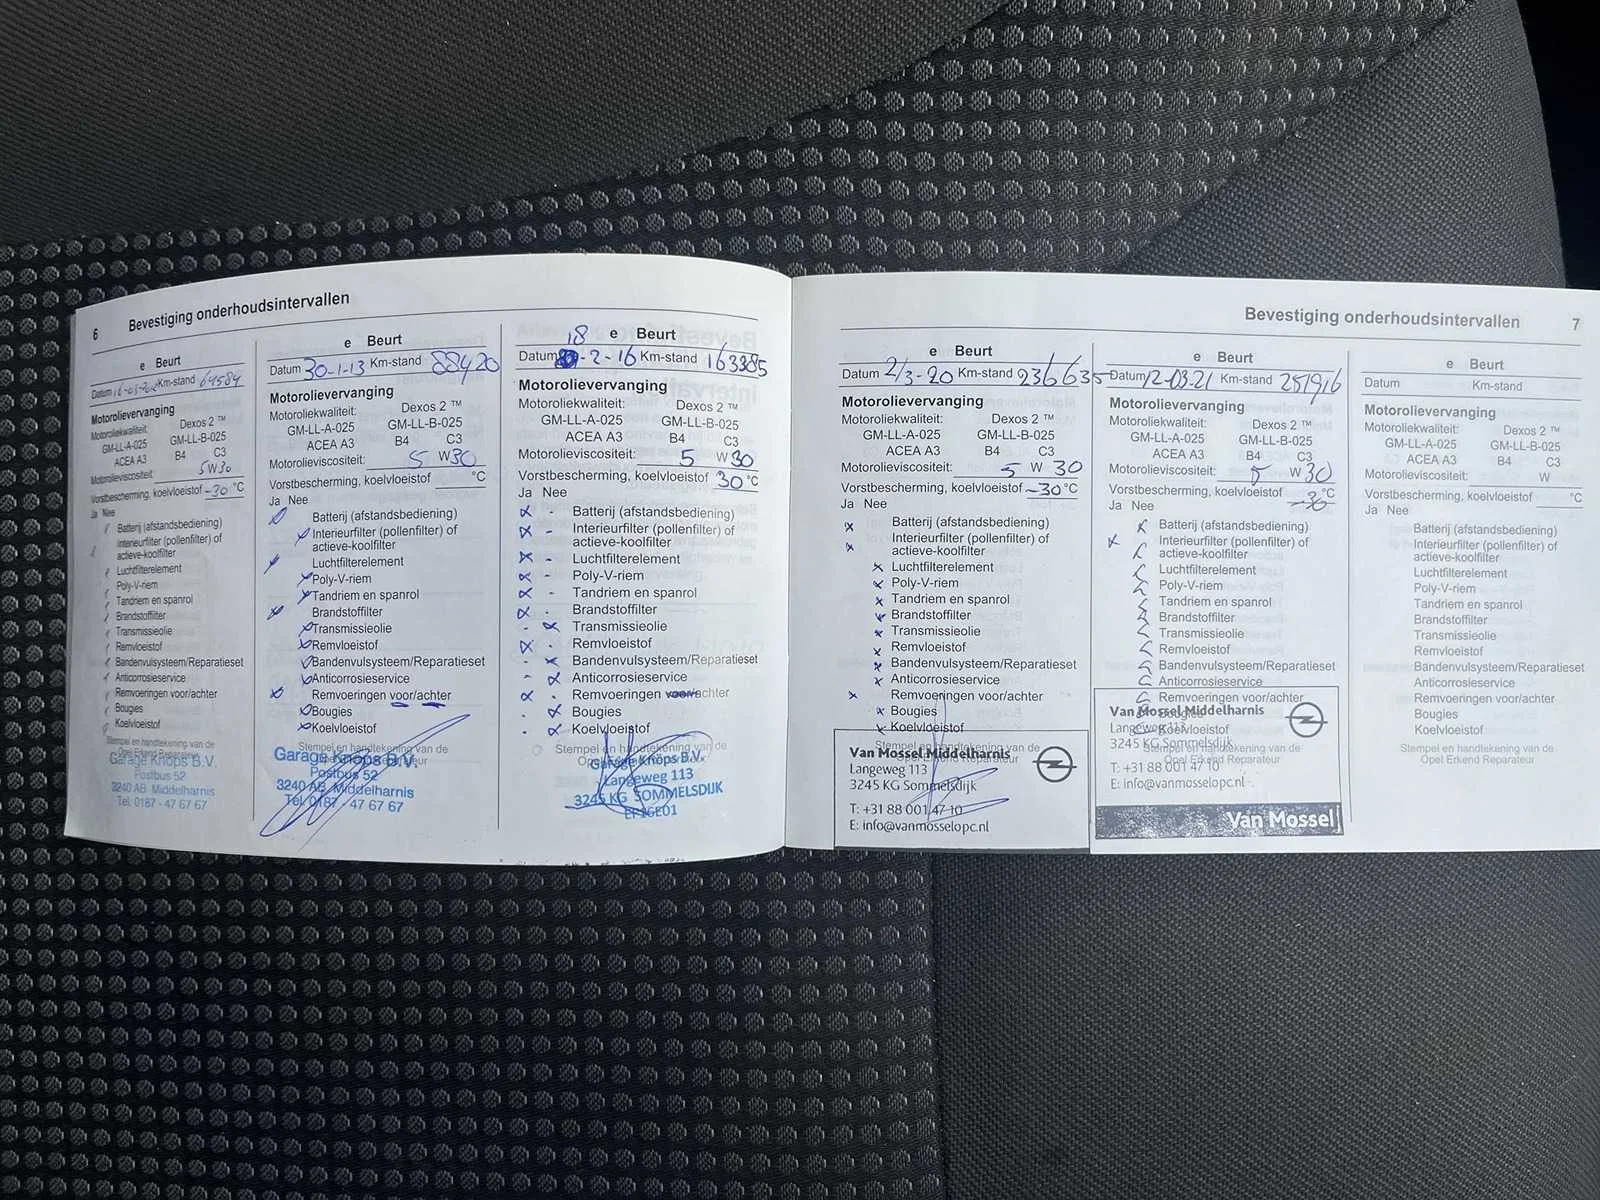 6 Bevestiging onderhoudsintervallen
e Beurt
Datum Km-stand 64584
Motorolievervanging
Motoroliekwaliteit: Dexos 2 ™
GM-LL-A-025 GM-LL-B-025
ACEA A3 B4 C3
Motorolieviscositeit: 5 W 30
Vorstbescherming, koelvloeistof -30 °C
Ja Nee
Batterij (afstandsbediening)
Interieurfilter (pollenfilter) of
actieve-koolfilter
Luchtfilterelement
Poly-V-riem
Tandriem en spanrol
Brandstoffilter
Transmissieolie
Remvloeistof
Bandenvulsysteem/Reparatieset
Anticorrosieservice
Remvoeringen voor/achter
Bougies
Koelvloeistof
Stempel en handtekening van de
Opel Erkend Reparateur
Garage Knöps B.V.
Postbus 52
3240 AB Middelharnis
Tel. 0187 - 47 67 67
e Beurt
Datum 30-1-13 Km-stand 88420
Motorolievervanging
Motoroliekwaliteit: Dexos 2 ™
GM-LL-A-025 GM-LL-B-025
ACEA A3 B4 C3
Motorolieviscositeit: 5 W 30
Vorstbescherming, koelvloeistof °C
Ja Nee
Batterij (afstandsbediening)
Interieurfilter (pollenfilter) of
actieve-koolfilter
Luchtfilterelement
Poly-V-riem
Tandriem en spanrol
Brandstoffilter
Transmissieolie
Remvloeistof
Bandenvulsysteem/Reparatieset
Anticorrosieservice
Remvoeringen voor/achter
Bougies
Koelvloeistof
Stempel en handtekening van de
Garage Knöps B.V.
Postbus 52
3240 AB Middelharnis
Tel. 0187 - 47 67 67
18 e Beurt
Datum -2-16 Km-stand 163385
Motorolievervanging
Motoroliekwaliteit: Dexos 2 ™
GM-LL-A-025 GM-LL-B-025
ACEA A3 B4 C3
Motorolieviscositeit: 5 W 30
Vorstbescherming, koelvloeistof 30 °C
Ja Nee
Batterij (afstandsbediening)
Interieurfilter (pollenfilter) of
actieve-koolfilter
Luchtfilterelement
Poly-V-riem
Tandriem en spanrol
Brandstoffilter
Transmissieolie
Remvloeistof
Bandenvulsysteem/Reparatieset
Anticorrosieservice
Remvoeringen voor/achter
Bougies
Koelvloeistof
Stempel en handtekening van de
Garage Knöps B.V.
Langeweg 113
3245 KG SOMMELSDIJK
Bevestiging onderhoudsintervallen 7
e Beurt
Datum 2/3-20 Km-stand 236635
Motorolievervanging
Motoroliekwaliteit: Dexos 2 ™
GM-LL-A-025 GM-LL-B-025
ACEA A3 B4 C3
Motorolieviscositeit: 5 W 30
Vorstbescherming, koelvloeistof -30 °C
Ja Nee
Batterij (afstandsbediening)
Interieurfilter (pollenfilter) of
actieve-koolfilter
Luchtfilterelement
Poly-V-riem
Tandriem en spanrol
Brandstoffilter
Transmissieolie
Remvloeistof
Bandenvulsysteem/Reparatieset
Anticorrosieservice
Remvoeringen voor/achter
Bougies
Koelvloeistof
Stempel en handtekening van de
Opel Erkend Reparateur
Van Mossel Middelharnis
Langeweg 113
3245 KG Sommelsdijk
T: +31 88 001 47 10
E: info@vanmosselopc.nl
e Beurt
Datum 12-03-21 Km-stand 251916
Motorolievervanging
Motoroliekwaliteit: Dexos 2 ™
GM-LL-A-025 GM-LL-B-025
ACEA A3 B4 C3
Motorolieviscositeit: 5 W 30
Vorstbescherming, koelvloeistof -30 °C
Ja Nee
Batterij (afstandsbediening)
Interieurfilter (pollenfilter) of
actieve-koolfilter
Luchtfilterelement
Poly-V-riem
Tandriem en spanrol
Brandstoffilter
Transmissieolie
Remvloeistof
Bandenvulsysteem/Reparatieset
Anticorrosieservice
Remvoeringen voor/achter
Bougies
Koelvloeistof
Stempel en handtekening van de
Opel Erkend Reparateur
Van Mossel Middelharnis
Langeweg 113
3245 KG Sommelsdijk
T: +31 88 001 47 10
E: info@vanmosselopc.nl
Van Mossel
e Beurt
Datum Km-stand
Motorolievervanging
Motoroliekwaliteit: Dexos 2 ™
GM-LL-A-025 GM-LL-B-025
ACEA A3 B4 C3
Motorolieviscositeit: W
Vorstbescherming, koelvloeistof °C
Ja Nee
Batterij (afstandsbediening)
Interieurfilter (pollenfilter) of
actieve-koolfilter
Luchtfilterelement
Poly-V-riem
Tandriem en spanrol
Brandstoffilter
Transmissieolie
Remvloeistof
Bandenvulsysteem/Reparatieset
Anticorrosieservice
Remvoeringen voor/achter
Bougies
Koelvloeistof
Stempel en handtekening van de
Opel Erkend Reparateur